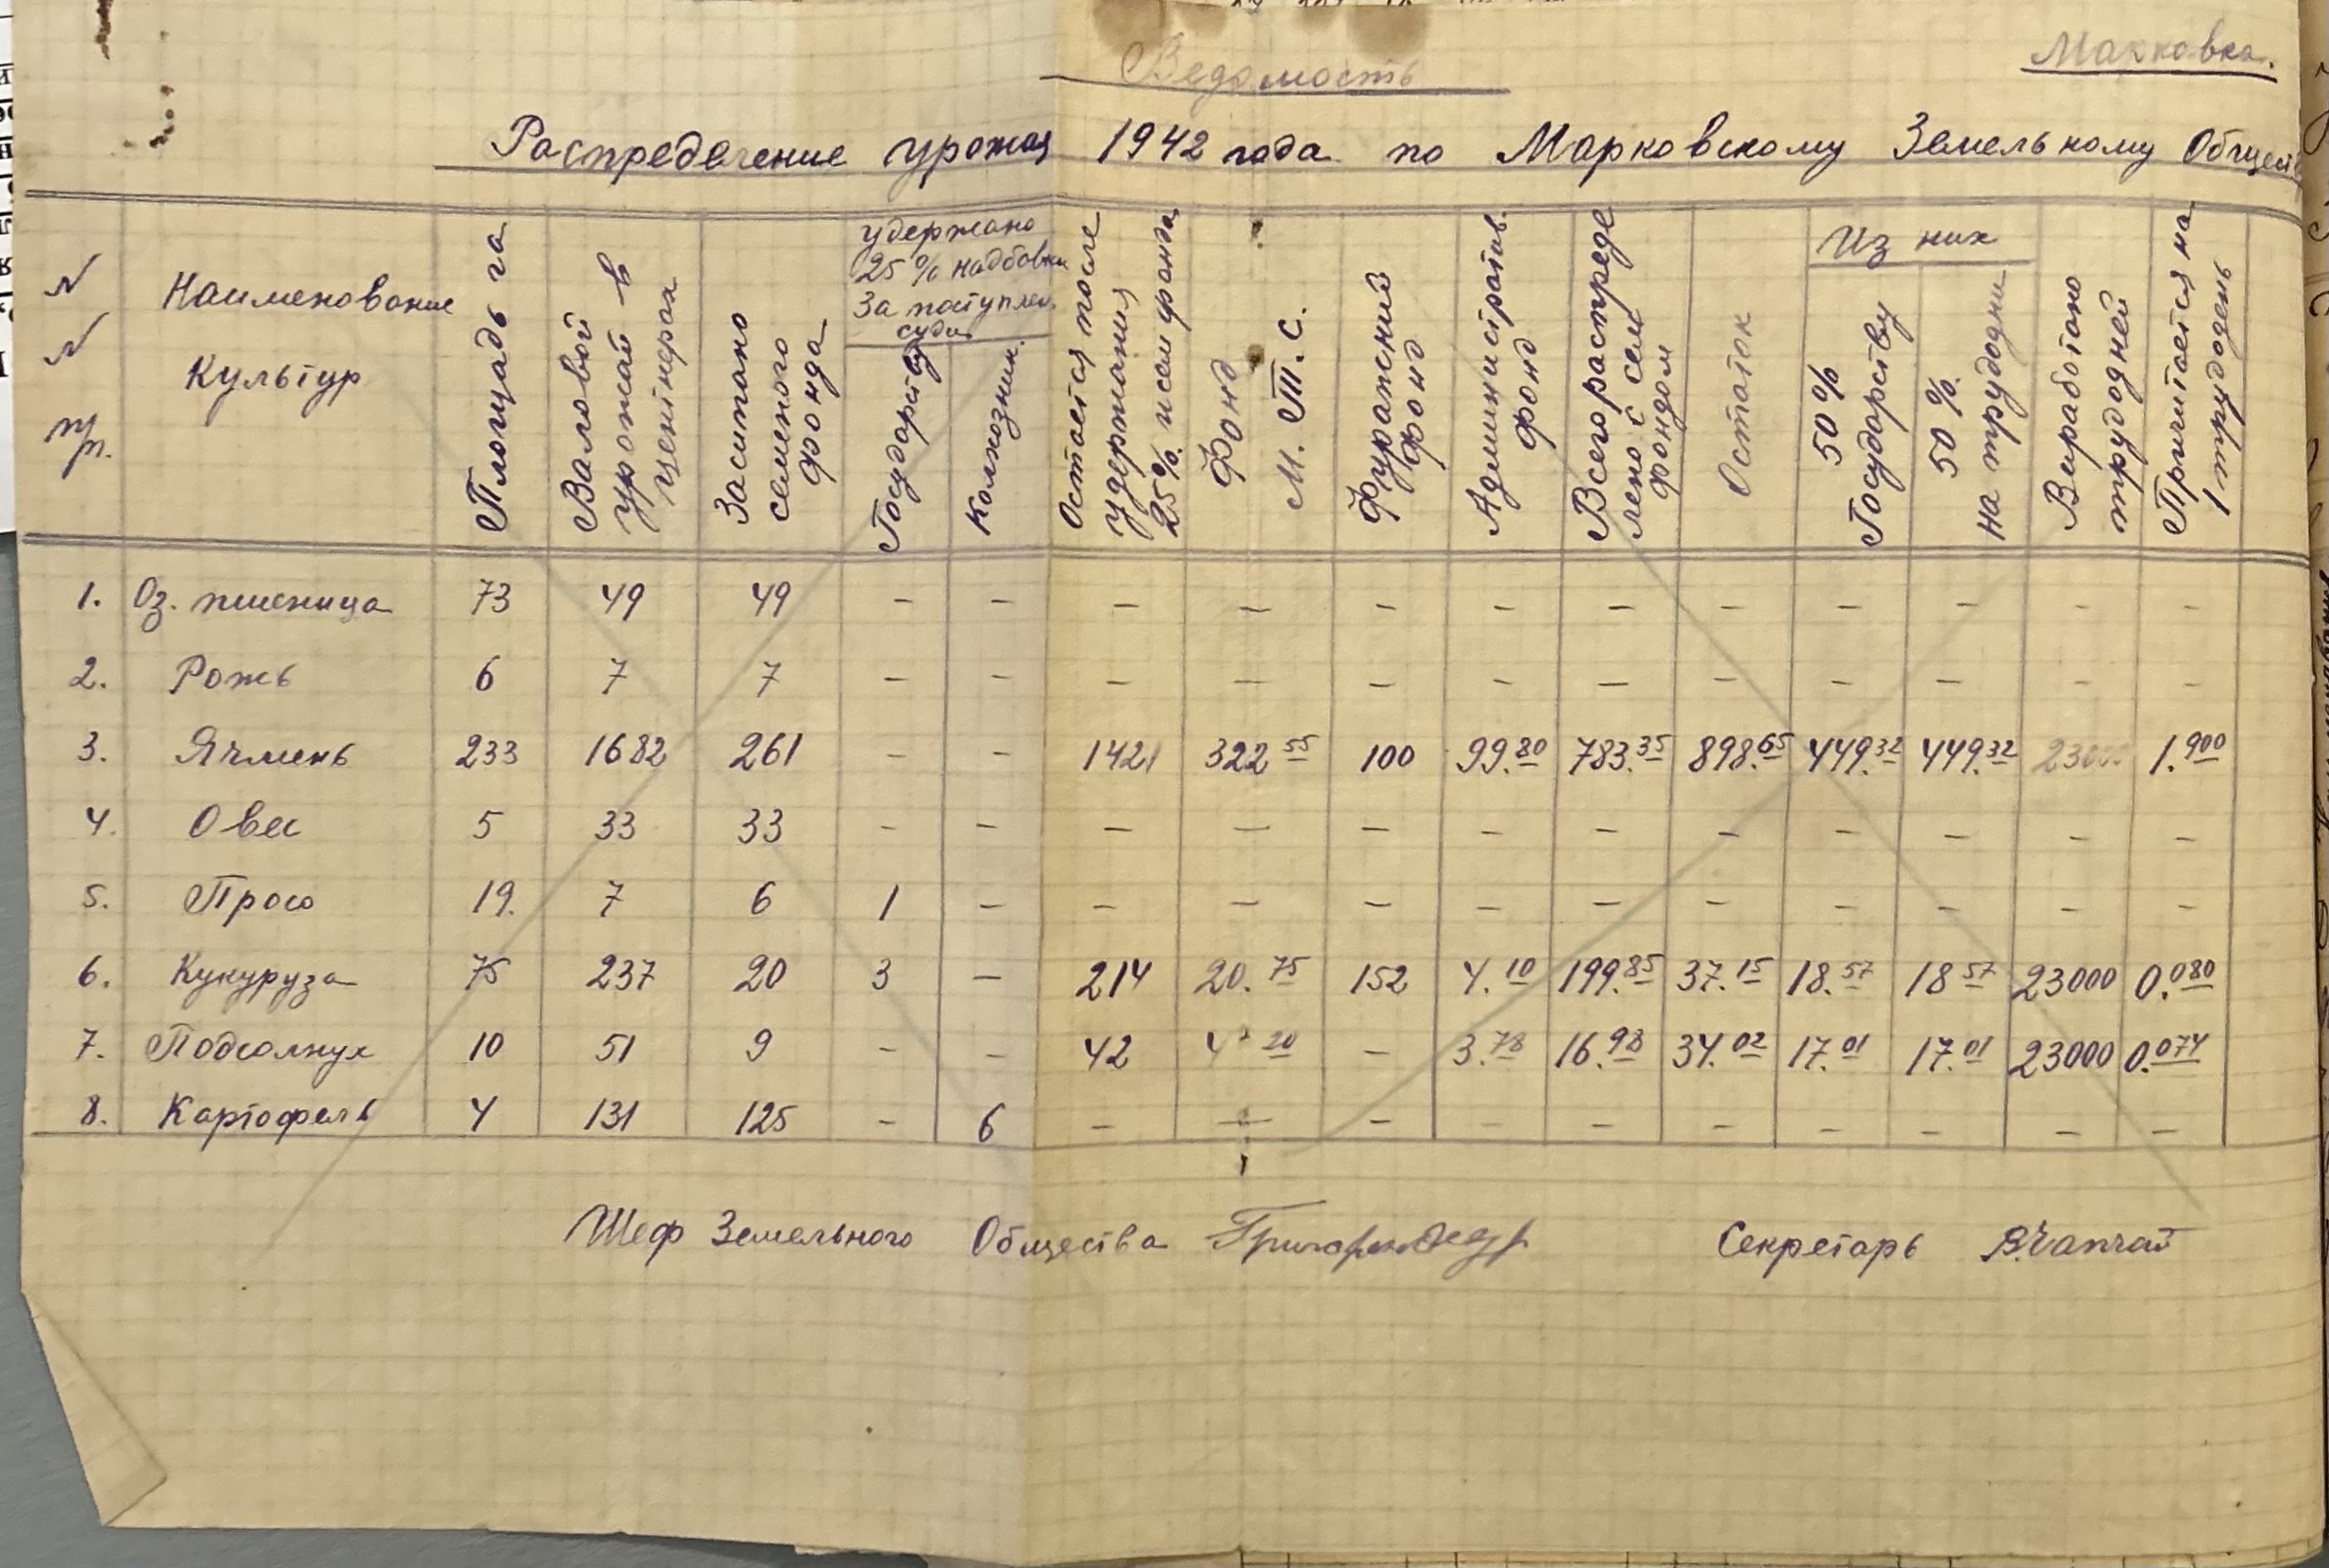 Марковка.
Ведомость
Распределение урожая 1942 года по Марковскому Земельному Общест
№ № п/п.
Наименование Культур
Площадь га
Валовой урожай в центнерах
Засипано семеного фонда
удержано 25% надбавки За поступлен. суди
Государству
Колхозник.
Остается после удержания 25% и сем фонда
Фонд М.Т.С.
Фуражний Фонд
Административ. Фонд
Всего распределено с сем фондом
Остаток
Из них
50% Государству
50% на трудодни
Виработано трудодней
Причитается на 1 трудодень
1. Оз. пшеница 73 49 49 – – – – – – – – – – – –
2. Рожь 6 7 7 – – – – – – – – – – – –
3. Ячмень 233 1682 261 – – 1421 322 55 100 99.80 783.35 898.65 449.32 449.32 23000 1.900
4. Овес 5 33 33 – – – – – – – – – – – –
5. Просо 19. 7 6 1 – – – – – – – – – – –
6. Кукуруза 75 237 20 3 – 214 20.75 152 4.10 199.85 37.15 18.57 18 57 23000 0.080
7. Подсолнух 10 51 9 – – 42 4 20 – 3.78 16.98 34.02 17.01 17.01 23000 0.074
8. Картофель 4 131 125 – 6 – – – – – – – – – –
Шеф Земельного Общества Секретарь В.Чапчай